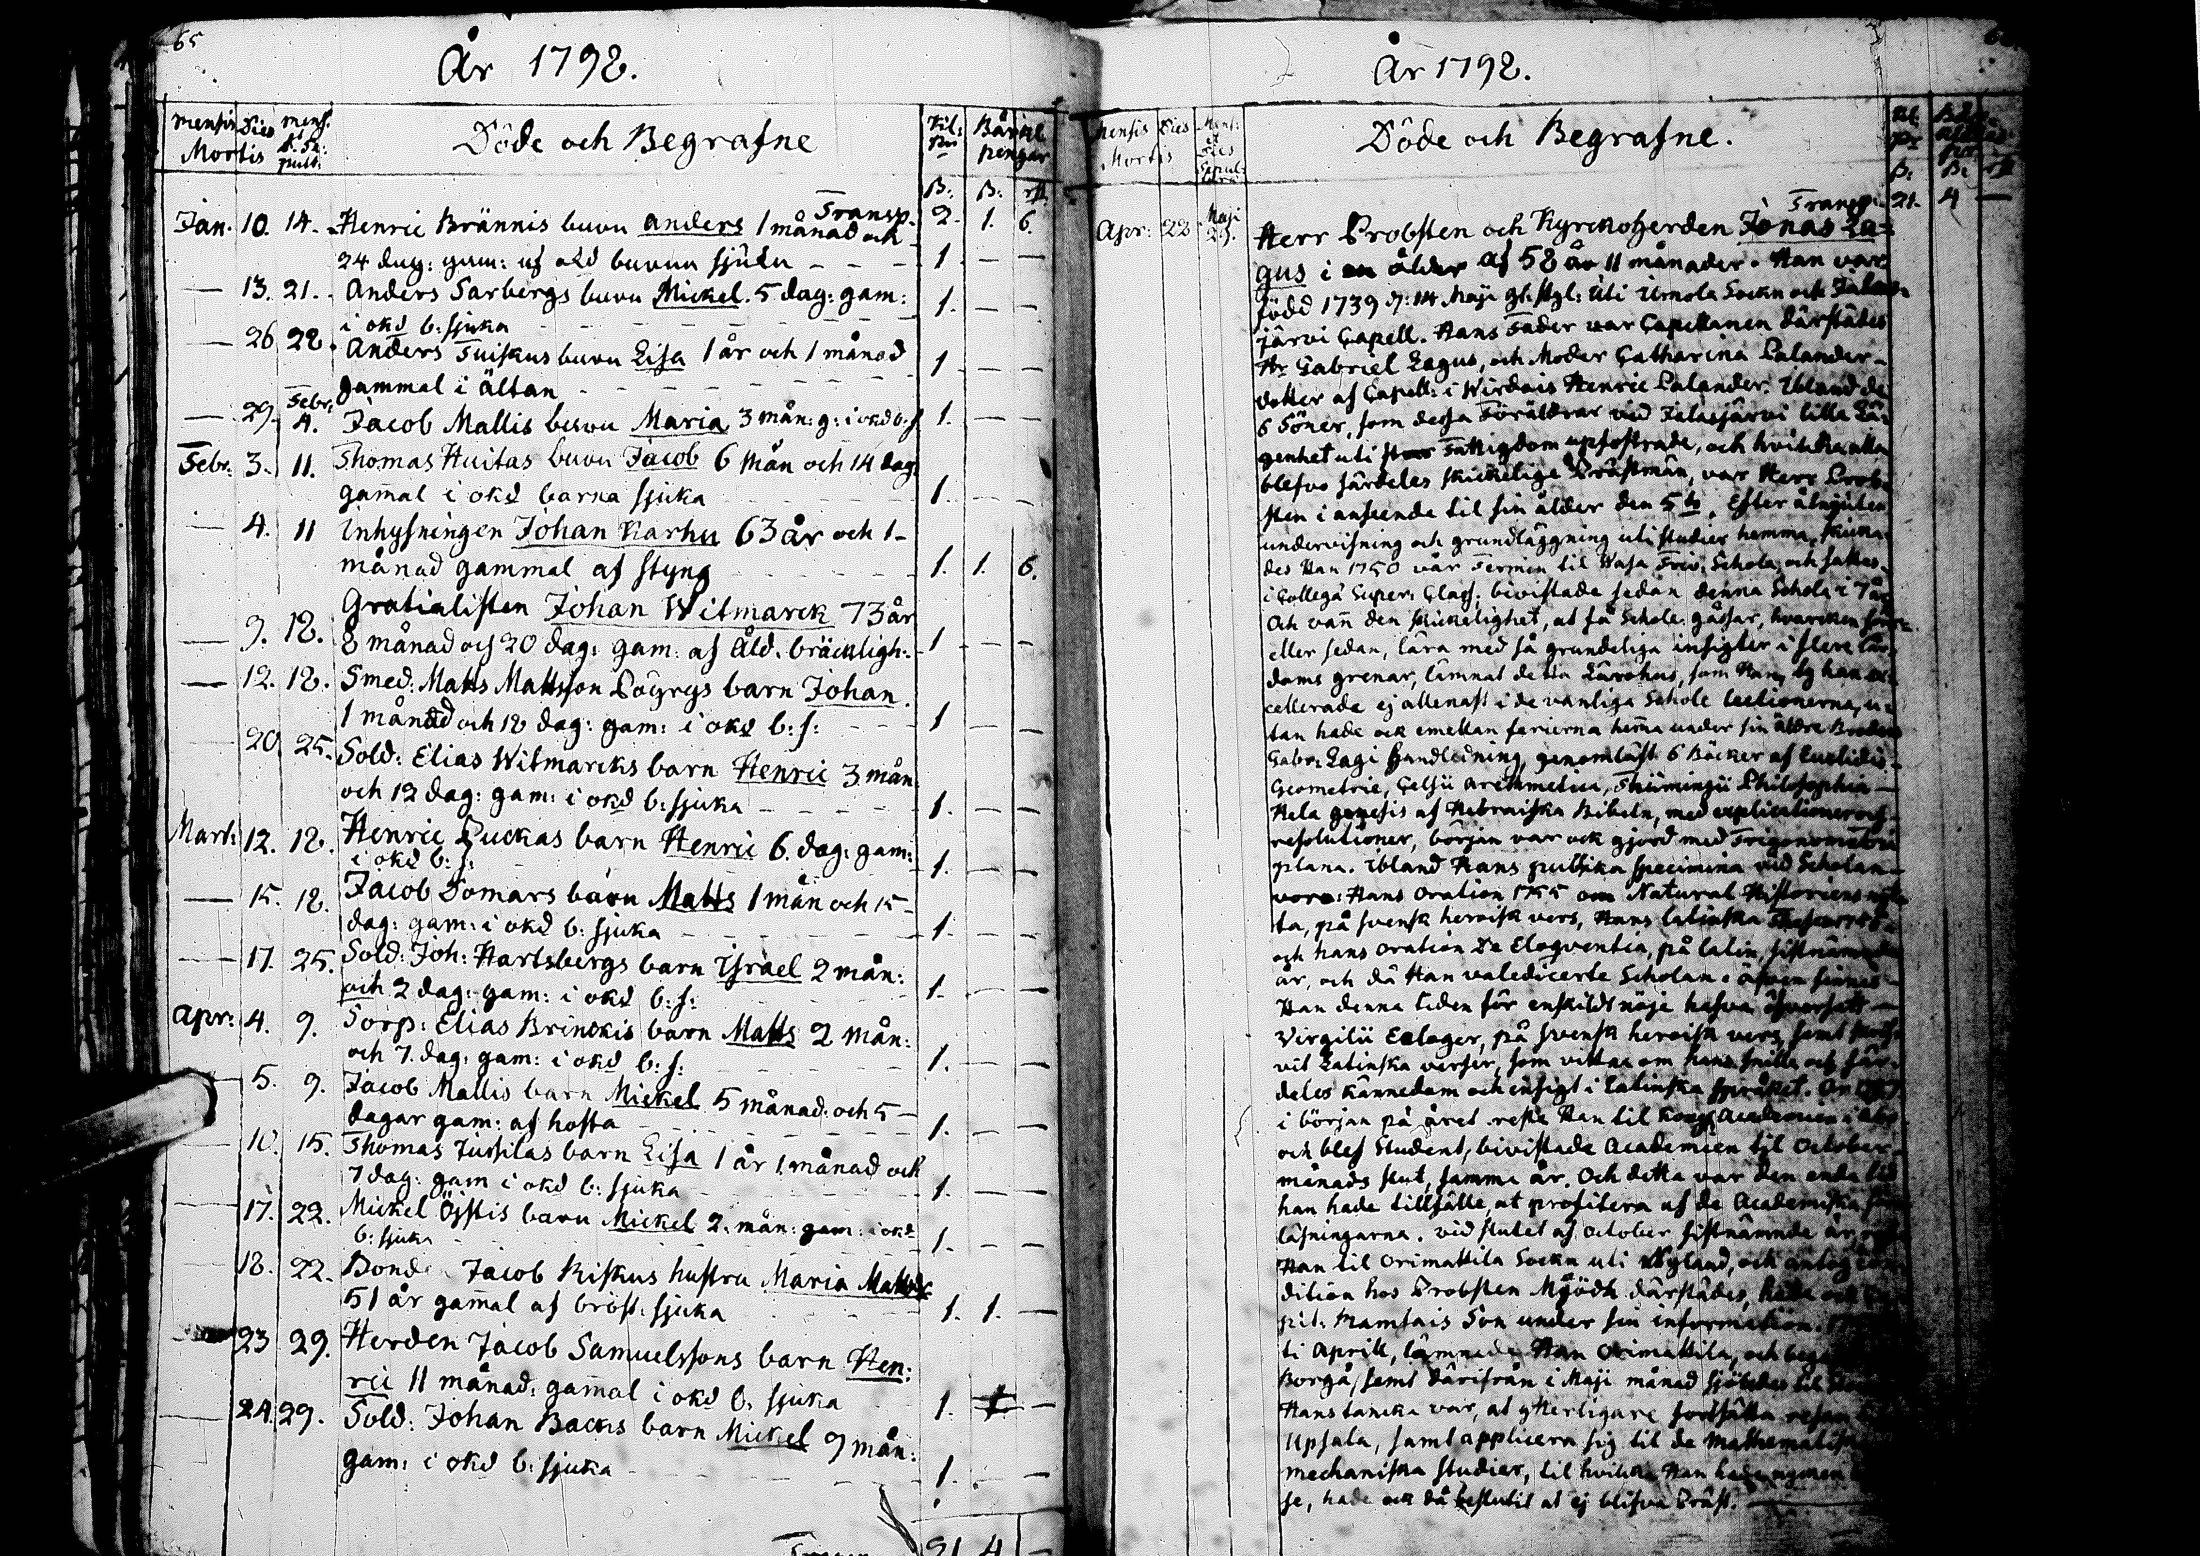 65
År 1798.
Mensis Dies Mens. & Se:
Mortis pult:
Döde och Begrafne
B. B.
Transp. 2. 1. 6.
Jan. 10. 14. Henric Brännis barn Anders 1 månad och
24 dag: gam: af okd barna sjuka 1. — —
— 13. 21. Anders Sarbergs barn Mickel 5 dag: gam:
i okd b: sjuka 1. — —
— 26 28. Anders Fuiskus barn Lisa 1 år och 1 månad
gammal i ältan 1 — —
— 29. Febr. 4. Jacob Mallis barn Maria 3 mån: g: i okd b: s 1. — —
Febr. 3. 11. Thomas Huitas barn Jacob 6 mån och 14 dag:
gam̄al i okd barna sjuka 1. — —
— 4. 11 Inhysningen Johan Karhu 63 år och 1
månad gammal af styng 1. 1. 6.
— 9. 18. Gratialisten Johan Witmarck 73 år
8 månad och 20 dag: gam: af Åld. bräckligh: 1 — —
— 12. 18. Smed: Matts Mattsson barn Johan
1 månad och 18 dag: gam: i okd b: s: 1 — —
20 25. Sold: Elias Witmarcks barn Henric 3 mån
och 12 dag: gam: i okd b: sjuka 1. — —
Mart: 12. 18. Henric Puckas barn Henric 6. dag: gam:
i okd b: s: 1. — —
— 15. 18. Jacob Domars barn Matts 1 mån och 15
dag: gam: i okd b: sjuka 1. — —
— 17. 25. Sold: Joh: Hartsbergs barn Israel 2 mån:
och 2 dag: gam: i okd b: s: 1. — —
Apr: 4. 9. Torp: Elias Brinckis barn Matts 2 mån:
och 7. dag: gam: i okd b: s: 1. — —
5. 9. Jacob Mallis barn Mickel 5 månad: och 5
dagar gam: af hosta 1. — —
10. 15. Thomas Jussilas barn Lisa 1 år 1. månad och
7 dag: gam i okd b: sjuka 1. — —
17. 22. Mickel Öjstis barn Mickel 2. mån: gam: i okd
b: sjuka 1. — —
18. 22. Bond Jacob Kiskus hustru Maria
51 år gam̄al af bröst: sjuka 1. 1. —
23 29. Herden Jacob Samuelssons barn Hen:
ric 11 månad: gam̄al i okd b: sjuka 1. —
24. 29. Sold: Johan Backs barn Mickel 9 mån:
gam: i okd b: sjuka 1. — —
21 4 —
År 1798.
Mensis Dies
Mortis
Döde och Begrafne.
Transp: 21. 4 —
Apr: 22 Maji 29. Herr Probsten och Kyrckoherden Jonas La=
gus i en ålder af 58 år 11 månader. Han var
född 1739 d: 14 Maji gl: styl: uti Ilmola Sockn och
järvi Capell. Hans Fader var Capellanen därstädes
Hr Gabriel Lagus, och Moder Catharina Palander
dotter af Capell: i Wirdois Henric Palander. Ibland de
6 Söner, som dessa Föräldrar vid Jalasjärvi lilla Lä=
genhet uti stor Fattigdom upfostrade, och hvilcka alla
blefvo särdeles skickelige Prästmän, var Herr Prob=
sten i anseende til sin ålder den 5te. Efter åtnjuten
undervisning och grundläggning uti studier hemma, skicka=
des Han 1750 vår Termin til Wasa Triv: Schola, och sattes
i Collega Super: Class: bivistade sedan denna Schola i 7 år
Och van̄ den skickelighet, at få Schole gåssar, hvarcken förr
eller sedan, lära med så grundeliga insigter i flere lär=
doms grenar, lämnat detta Lärohus, som Han, ty han ex=
cellerade ej allenast i de vanliga Schole lectionerna, u=
tan hade ock emellan ferierna hem̄a under sin äldre Broders
Gabr: Lagi handledning, genomläst 6 Böcker af Euclidis
Geometrie, Celsii Arithmetica, Thümmingii Philosophia
Hela genesis af Hebraiska Bibeln, med explicationer och
resolutioner, början var ock gjord med Trigonometri
plana. Ibland Hans publika specimina vid Scholan
voro: Hans Oration 1755 om Natural Historiens nyt=
ta, på svensk heroisk vers, Hans latinska
och hans oration De Eloqventia, på latin, sistnämnde
år, och då Han valedicerte Scholan:
Han denna tiden för enskildt nöje hafva öfversatt
Virgilii Ecloger, på svensk heroisk vers, samt skrif=
vit Latinska verser, som vittna om hans snille och sär=
deles kännedom och insigt i Latinska språket. 
i början på året reste Han til Kongl Academien i Åbo
och blef Student, bivistade Academien til October
månads slut, samma år. Och detta var den enda tid
han hade tillfälle, at profitera af de Academiska före=
läsningarna. vid slutet af October sistnämnde år
Han til Orimattila Sockn uti Nyland, och antog con=
dition hos Probsten Mjödh därstädes, hade och
Son under sin information.
ti Aprill, lämnade Han Orimattila, och
Borgå, samt därifrån i Maji månad til
Hans tancka var, at ytterligare fortsätta resan
Upsala, samt applicera sig til de Mathematiska
mechaniska studier, til hvilka Han hade
se, hade ock då beslutit at ej blifva Präst.